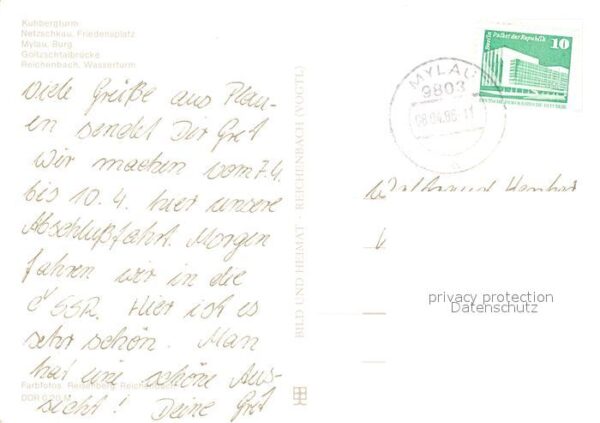 Kuhbergturm
Netzschkau, Friedensplatz
Mylau, Burg
Göltzschtalbrücke
Reichenbach, Wasserturm
Viele Grüße aus Plau-
en sendet Dir Gret
Wir machen vom 7.4.
bis 10.4. hier unsere
Abschlußfahrt. Morgen
fahren wir in die
ČSSR. Hier ist es
sehr schön. Man
hat eine schöne Aus-
sicht! Deine Gret
Farbfotos: Regenberg, Reichenbach
DDR 0,20 M
BILD UND HEIMAT · REICHENBACH (VOGTL)
Berlin Palast der Republik
10
DEUTSCHE DEMOKRATISCHE REPUBLIK
MYLAU
9803
08.04.86-11
a
privacy protection
Datenschutz